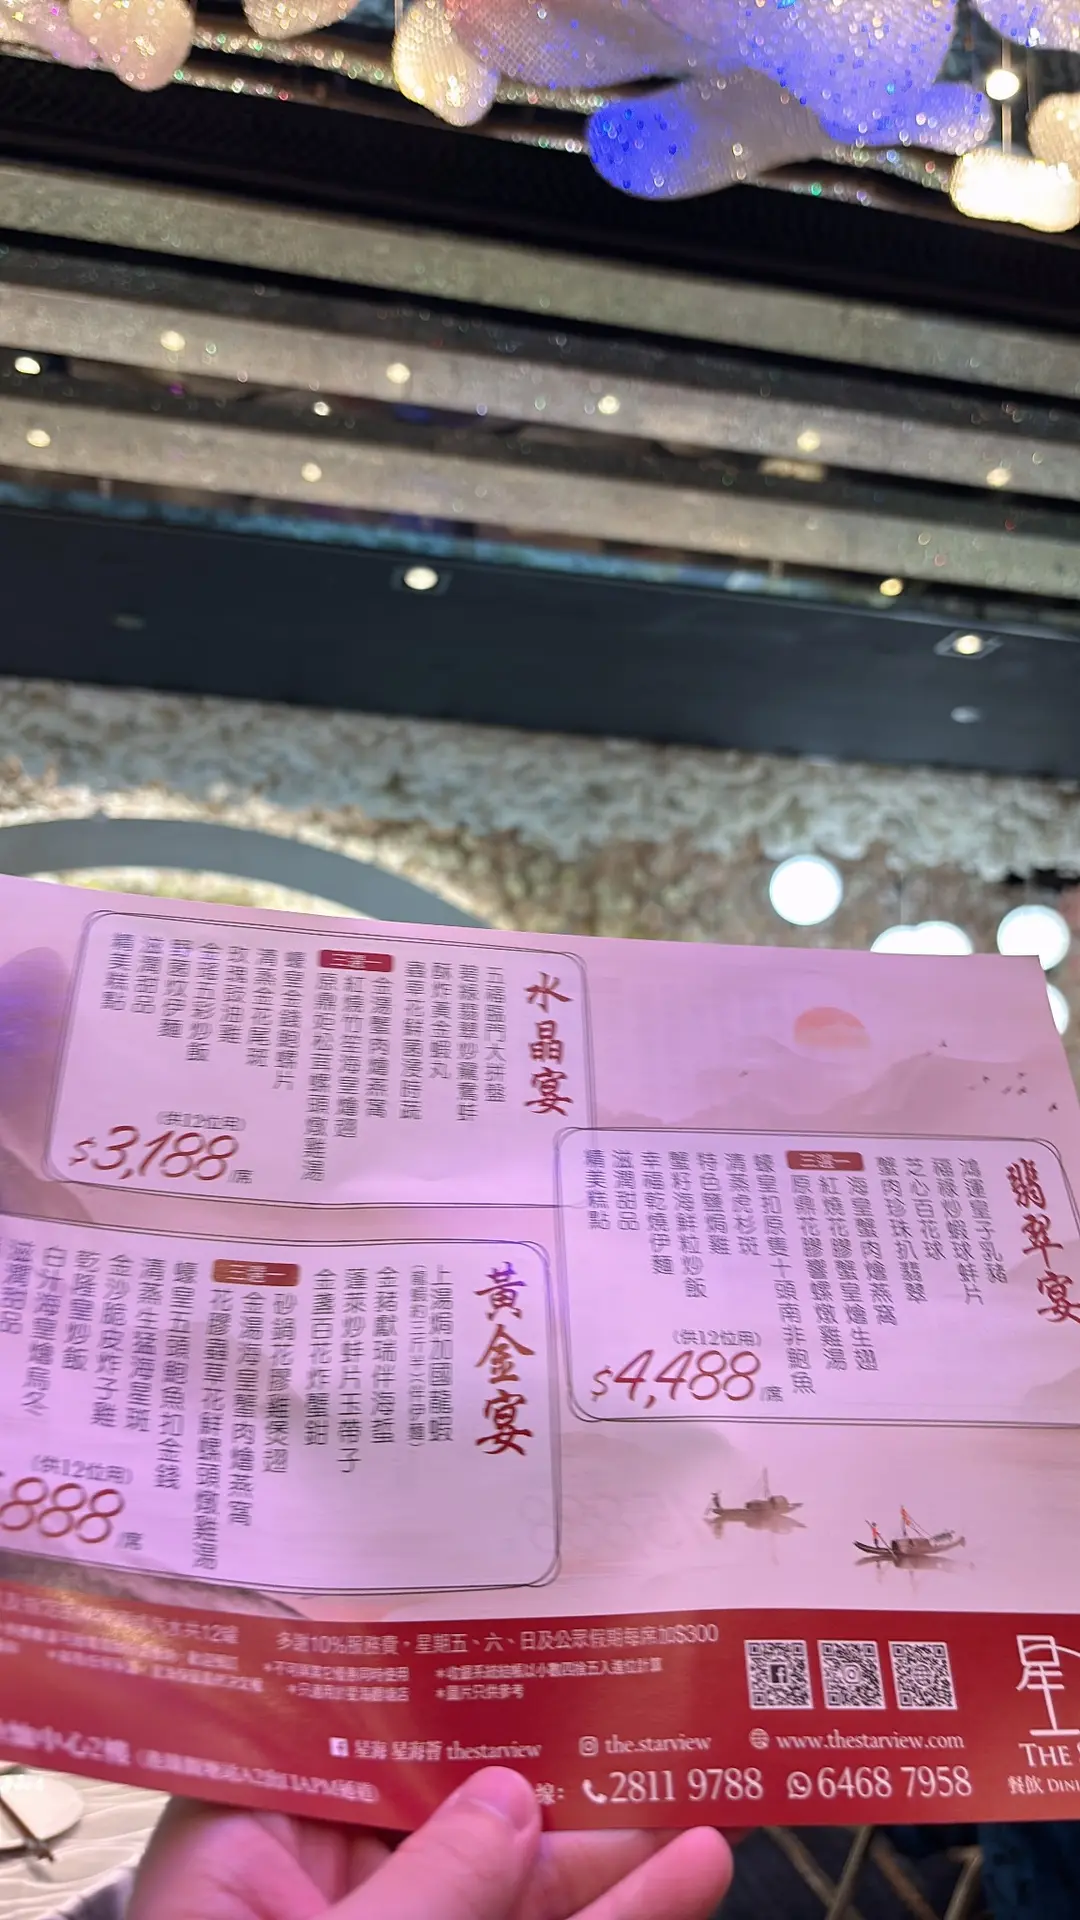 水晶宴
五福臨門大拼盤
碧綠翡翠炒龍鬚蚌
酥炸黃金蝦丸
蟲草花鮮菌浸時蔬
金湯蟹肉燴燕窩
三選一
紅燒竹笙海皇燴翅
原鼎姬松茸螺頭燉雞湯
蠔皇金錢鮑螺片
清蒸金花尾斑
玫瑰豉油雞
金瑤五彩炒飯
野菌炆伊麵
滋潤甜品
精美糕點
(供12位用)
$3,188/席
翡翠宴
鴻運皇子乳豬
福祿炒蝦球蚌片
芝心百花球
蟹肉珍珠扒翡翠
海皇蟹肉燴燕窩
三選一
紅燒花膠蟹皇燴生翅
原鼎花膠響螺燉雞湯
蠔皇扣原隻十頭南非鮑魚
清蒸虎衫斑
特色鹽焗雞
蟹籽海鮮粒炒飯
幸福乾燒伊麵
滋潤甜品
精美糕點
(供12位用)
$4,488/席
黃金宴
上湯焗加國龍蝦
金豬獻瑞伴海蜇
蓬萊炒蚌片玉帶子
金盞百花炸釀鉗
砂鍋花膠雞煲翅
三選一
金湯海皇蟹肉燴燕窩
花膠蟲草花鮮螺頭燉雞湯
蠔皇五頭鮑魚扣金錢
清蒸生猛海星斑
金沙脆皮炸子雞
乾隆皇炒飯
白汁海皇燴烏冬
滋潤甜品
(供12位用)
888/席
汽水共12罐
多謝10%服務費，星期五、六、日及公眾假期每席加$300
*不可與其它優惠同時使用
*收銀系統結帳以小數四捨五入進位計算
*只適用於星海觀塘店
*圖片只供參考
中心2樓
星海 星海薈 thestarview
the.starview
www.thestarview.com
線：
2811 9788
6468 7958
星
THE
餐飲 DINI